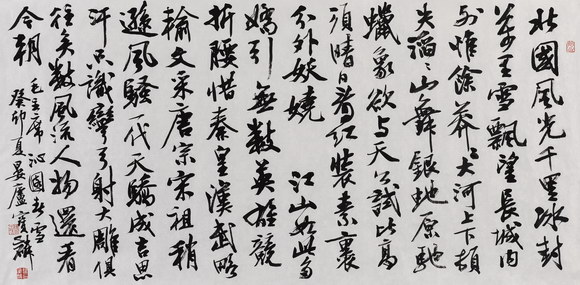 北國風光千里冰封
萬里雪飄望長城内
外惟餘莽々大河上下頓
失滔々山舞銀蛇原馳
蠟象欲与天公試比高
須晴日看紅裝素裹
分外妖嬈 江山如此多
嬌引無數英雄競
折腰惜秦皇漢武略
輸文采唐宗宋祖稍
遜風騷一代天驕成吉思
汗只識彎弓射大雕俱
往矣數風流人物還看
今朝 毛主席沁園春雪
癸卯夏